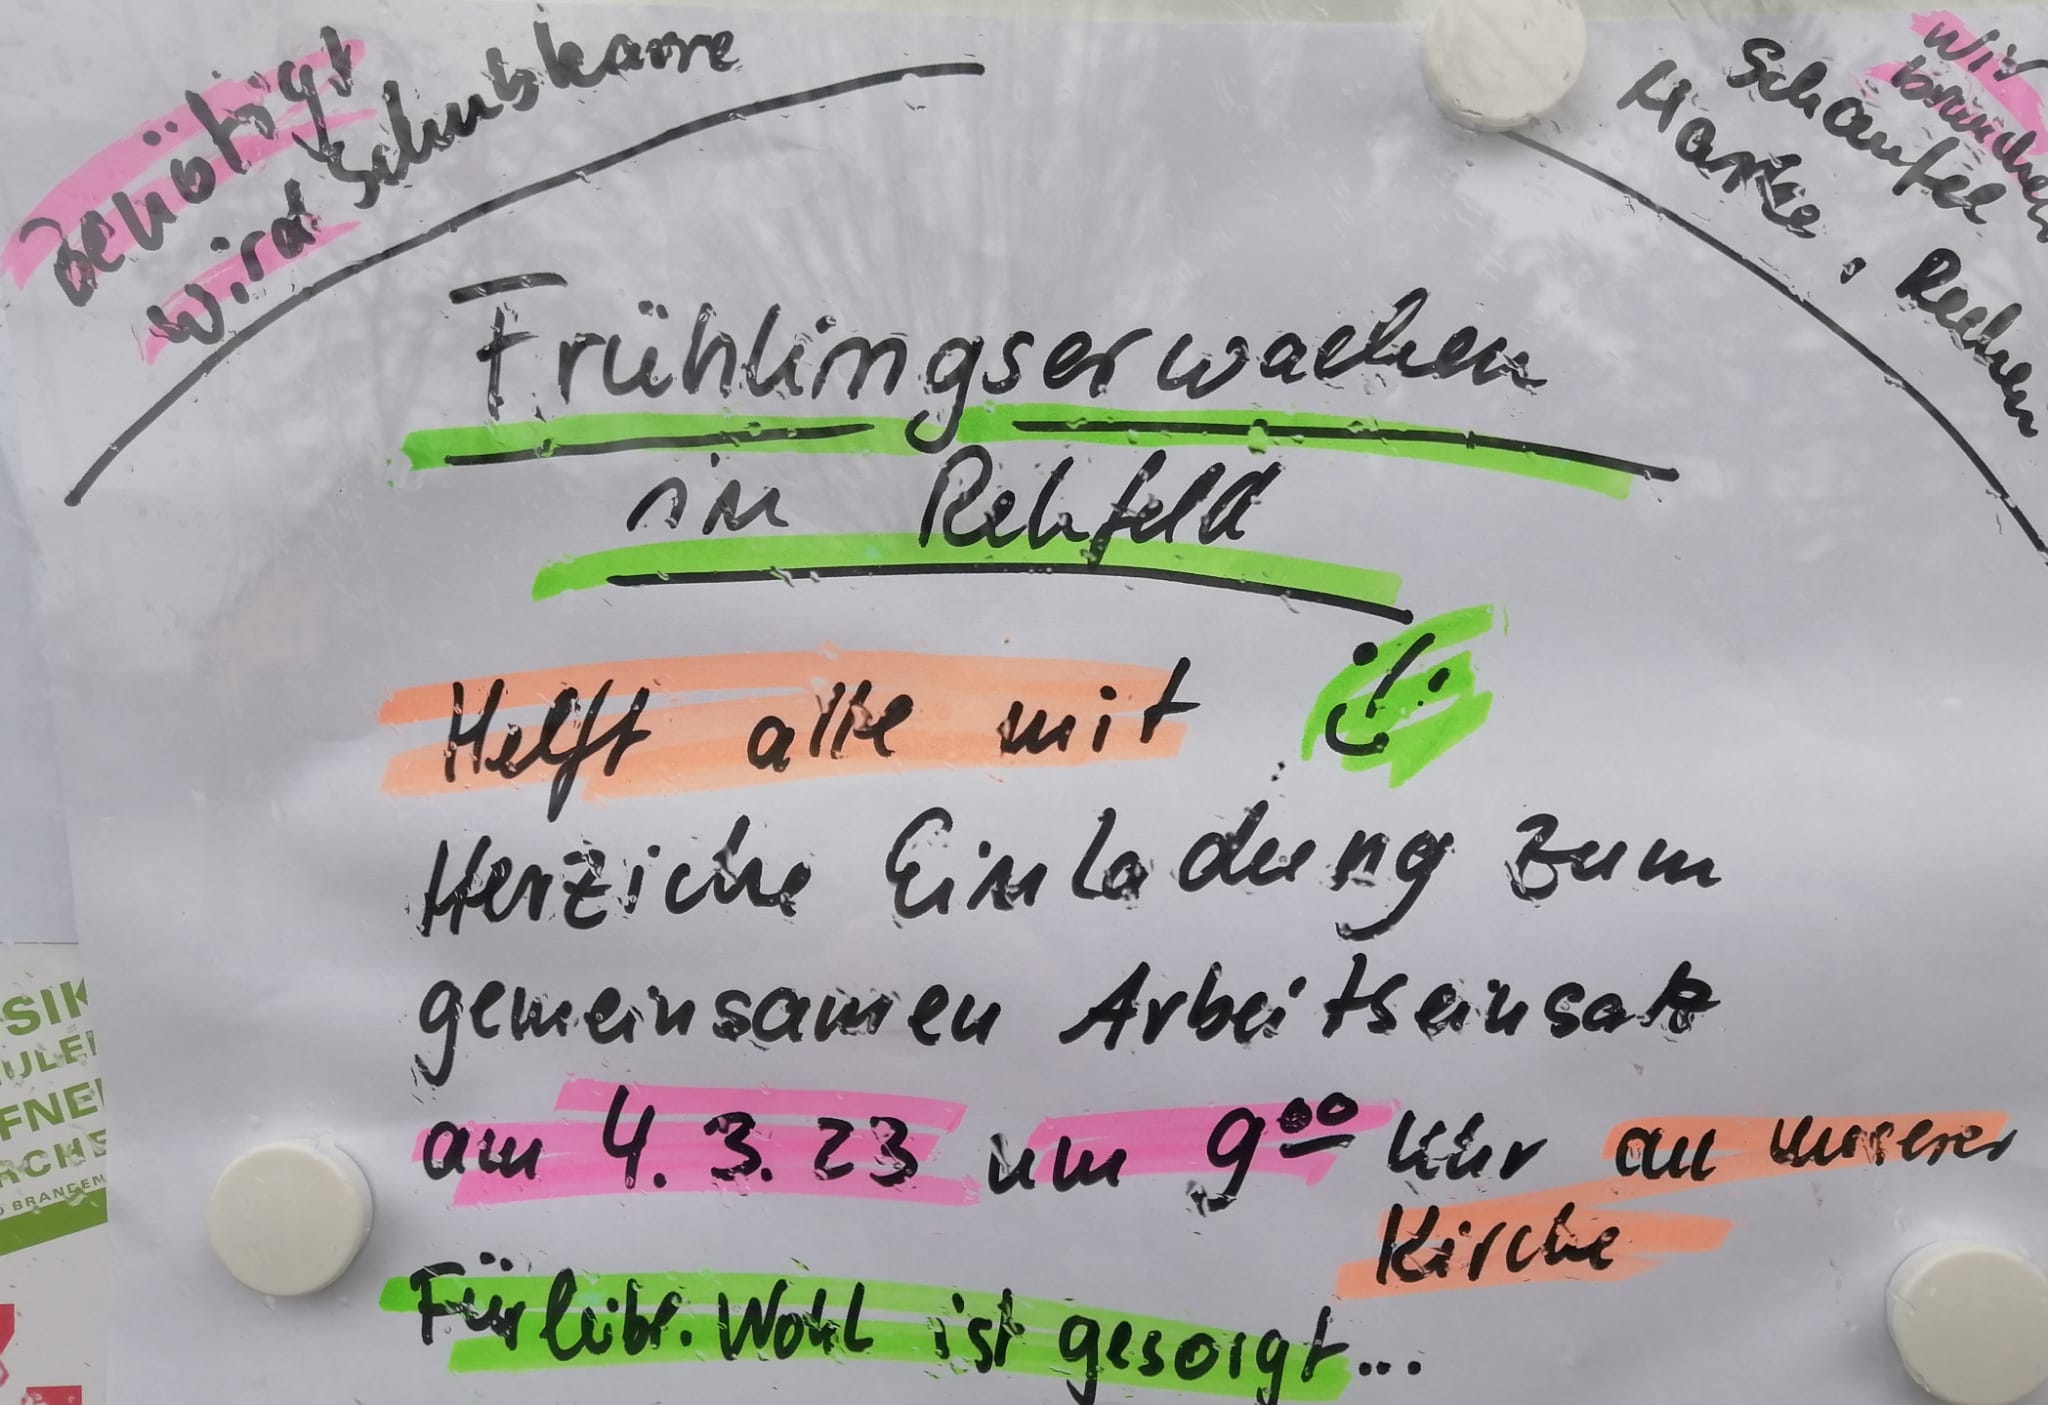 Benötigt
wird Schubkarre
Wir
brauchen
Schaufel
Harke, Rechen
Frühlingserwachen
in Rehfeld
Helft alle mit
Herziche Einladung zum
gemeinsamen Arbeitseinsatz
am 4.3.23 um 9⁰⁰ Uhr an unserer
Kirche
Für leibl. Wohl ist gesorgt...
SIK
ULE
FNE
RCHE
D BRANDEN